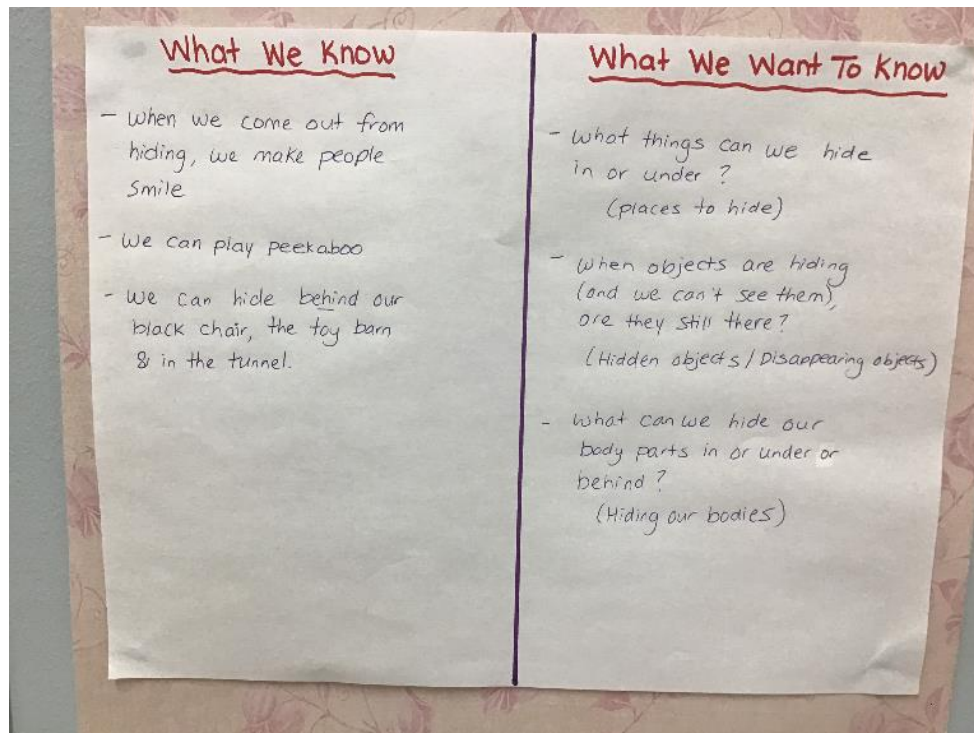 What We Know
- When we come out from
hiding, we make people
smile
- We can play peekaboo
- We can hide behind our
black chair, the toy barn
& in the tunnel.
What We Want To Know
- What things can we hide
in or under ?
(places to hide)
- When objects are hiding
(and we can't see them),
are they still there ?
(Hidden objects / Disappearing objects)
- What can we hide our
body parts in or under or
behind ?
(Hiding our bodies)